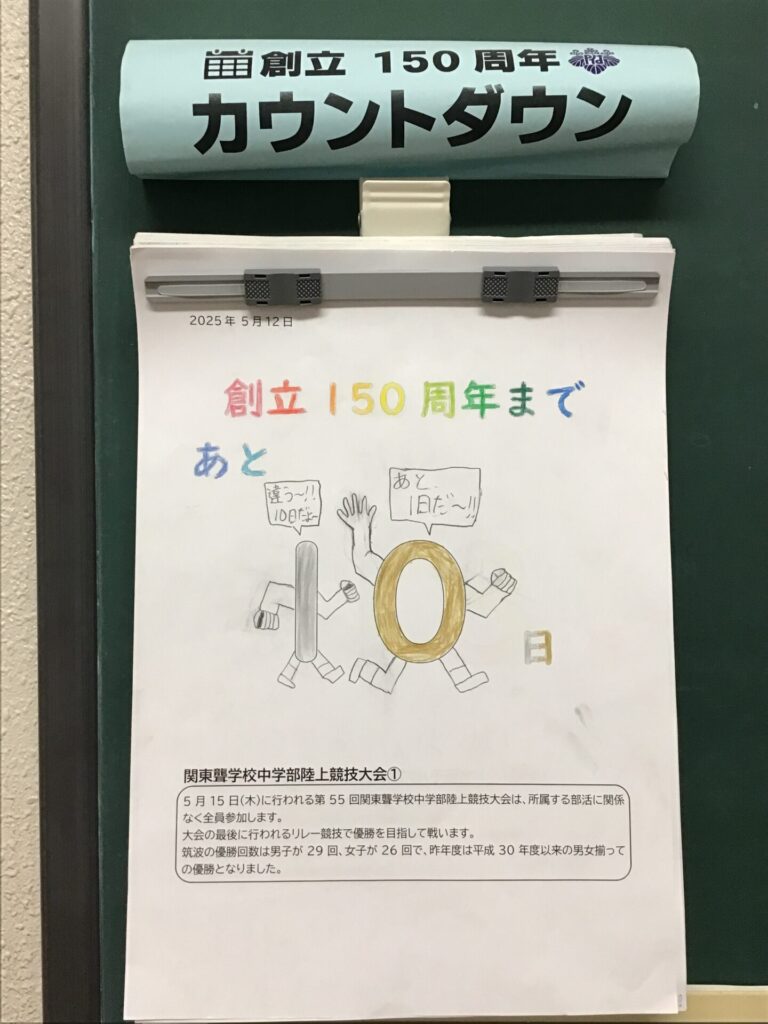 創立 150 周年
カウントダウン
2025年 5月12日
創立150周年まで
あと
違う〜!!
10日だよ〜
あと、
1日だ〜!!
10
日
関東聾学校中学部陸上競技大会①
5 月 15 日(木)に行われる第 55 回関東聾学校中学部陸上競技大会は、所属する部活に関係
なく全員参加します。
大会の最後に行われるリレー競技で優勝を目指して戦います。
筑波の優勝回数は男子が 29 回、女子が 26 回で、昨年度は平成 30 年度以来の男女揃って
の優勝となりました。